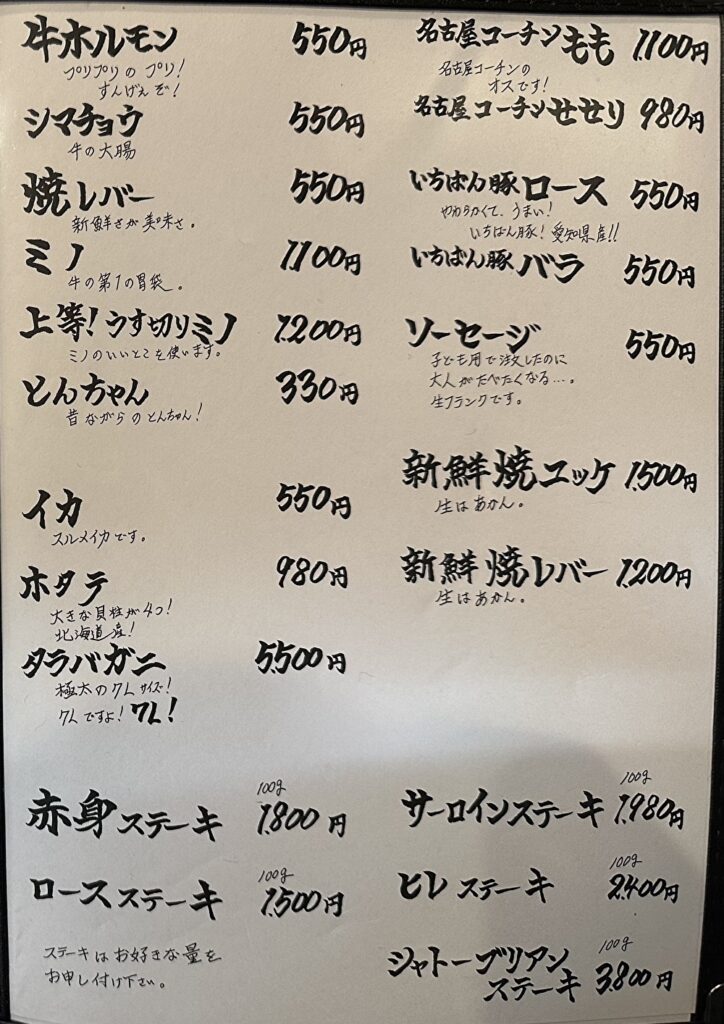 牛ホルモン 550円
プリプリの プリ！
すんげぇぞ！
シマチョウ 550円
牛の大腸
焼レバー 550円
新鮮さが美味さ。
ミノ 1,100円
牛の第1の胃袋。
上等！うす切りミノ 1,200円
ミノのいいとこを使います。
とんちゃん 330円
昔ながらのとんちゃん！
イカ 550円
スルメイカです。
ホタテ 980円
大きな貝柱が4つ！
北海道産！
タラバガニ 5,500円
極太の7Lサイズ！
7Lですよ！7L！
名古屋コーチンもも 1,100円
名古屋コーチンの
オスです！
名古屋コーチンせせり 980円
いちばん豚ロース 550円
やわらかくて、うまい！
いちばん豚！愛知県産!!
いちばん豚バラ 550円
ソーセージ 550円
子ども用で注文したのに
大人がたべたくなる…。
生フランクです。
新鮮焼ユッケ 1,500円
生はあかん。
新鮮焼レバー 1,200円
生はあかん。
赤身ステーキ 100g 1,800円
ロースステーキ 100g 1,500円
ステーキはお好きな量を
お申し付け下さい。
サーロインステーキ 100g 1,980円
ヒレステーキ 100g 2,400円
シャトーブリアン
ステーキ 100g 3,800円